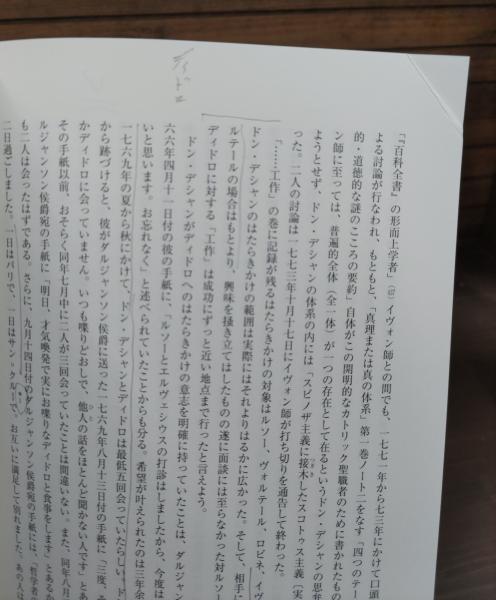 ディドロ
「『百科全書』の形而上学者」(42)イヴォン師との間でも、一七七一年から七三年にかけて口頭
よる討論が行なわれ、もともと、『真理または真の体系』第一巻ノート二をなす「四つのテー
的・道徳的な謎のこころの要約」自体がこの開明的なカトリック聖職者のために書かれたもの
ン師に至っては、普遍的全体〔全一体〕が一つの存在として在るというドン・デシャンの思
ようとせず、ドン・デシャンの体系の内には「スピノザ主義に接木したスコトゥス主義〔実
った。二人の討論は一七七三年十月十七日にイヴォン師が打ち切りを通告して終わった。
「……工作」の巻に記録が残るはたらきかけの対象はルソー、ヴォルテール、ロビネ、イヴ
ドン・デシャンのはたらきかけの範囲は実際にはそれよりはるかに広かった。そして、相手に
ルテールの場合はもとより、興味を掻き立てはしたものの遂に面談には至らなかった対ルソー
ディドロに対する「工作」は成功にずっと近い地点まで行ったと言えよう。
ドン・デシャンがディドロへのはたらきかけの意志を明確に持っていたことは、ダルジャン
六六年四月十一日付の彼の手紙に、「ルソーとエルヴェシウスの打診はしましたから、今度は
いと思います。お忘れなく」と述べられていたことからも分る。希望が叶えられたのは三年余
一七六九年の夏から秋にかけて、ドン・デシャンとディドロは最低五回会っていたらしい。ド
から跡づけると、彼がダルジャンソン侯爵に送った一七六九年八月十三日付の手紙に「三度、そ
かディドロに会っていません。いつも喋りどおしで、他人の話をほとんど聞かない人です」とあ
その手紙以前、おそらく同年七月中に二人が三回会っていたことは間違いない。また、同年八月
ルジャンソン侯爵宛の手紙に「明日、才気喚発で実にお喋りなディドロと食事をします」とあるか
も二人は会ったはずである。さらに、九月十四日付のダルジャンソン侯爵宛の手紙には、「哲学者
二日過ごしました。一日はパリで、一日はサン＝クルーで。お互いに満足して別れました。あの人は